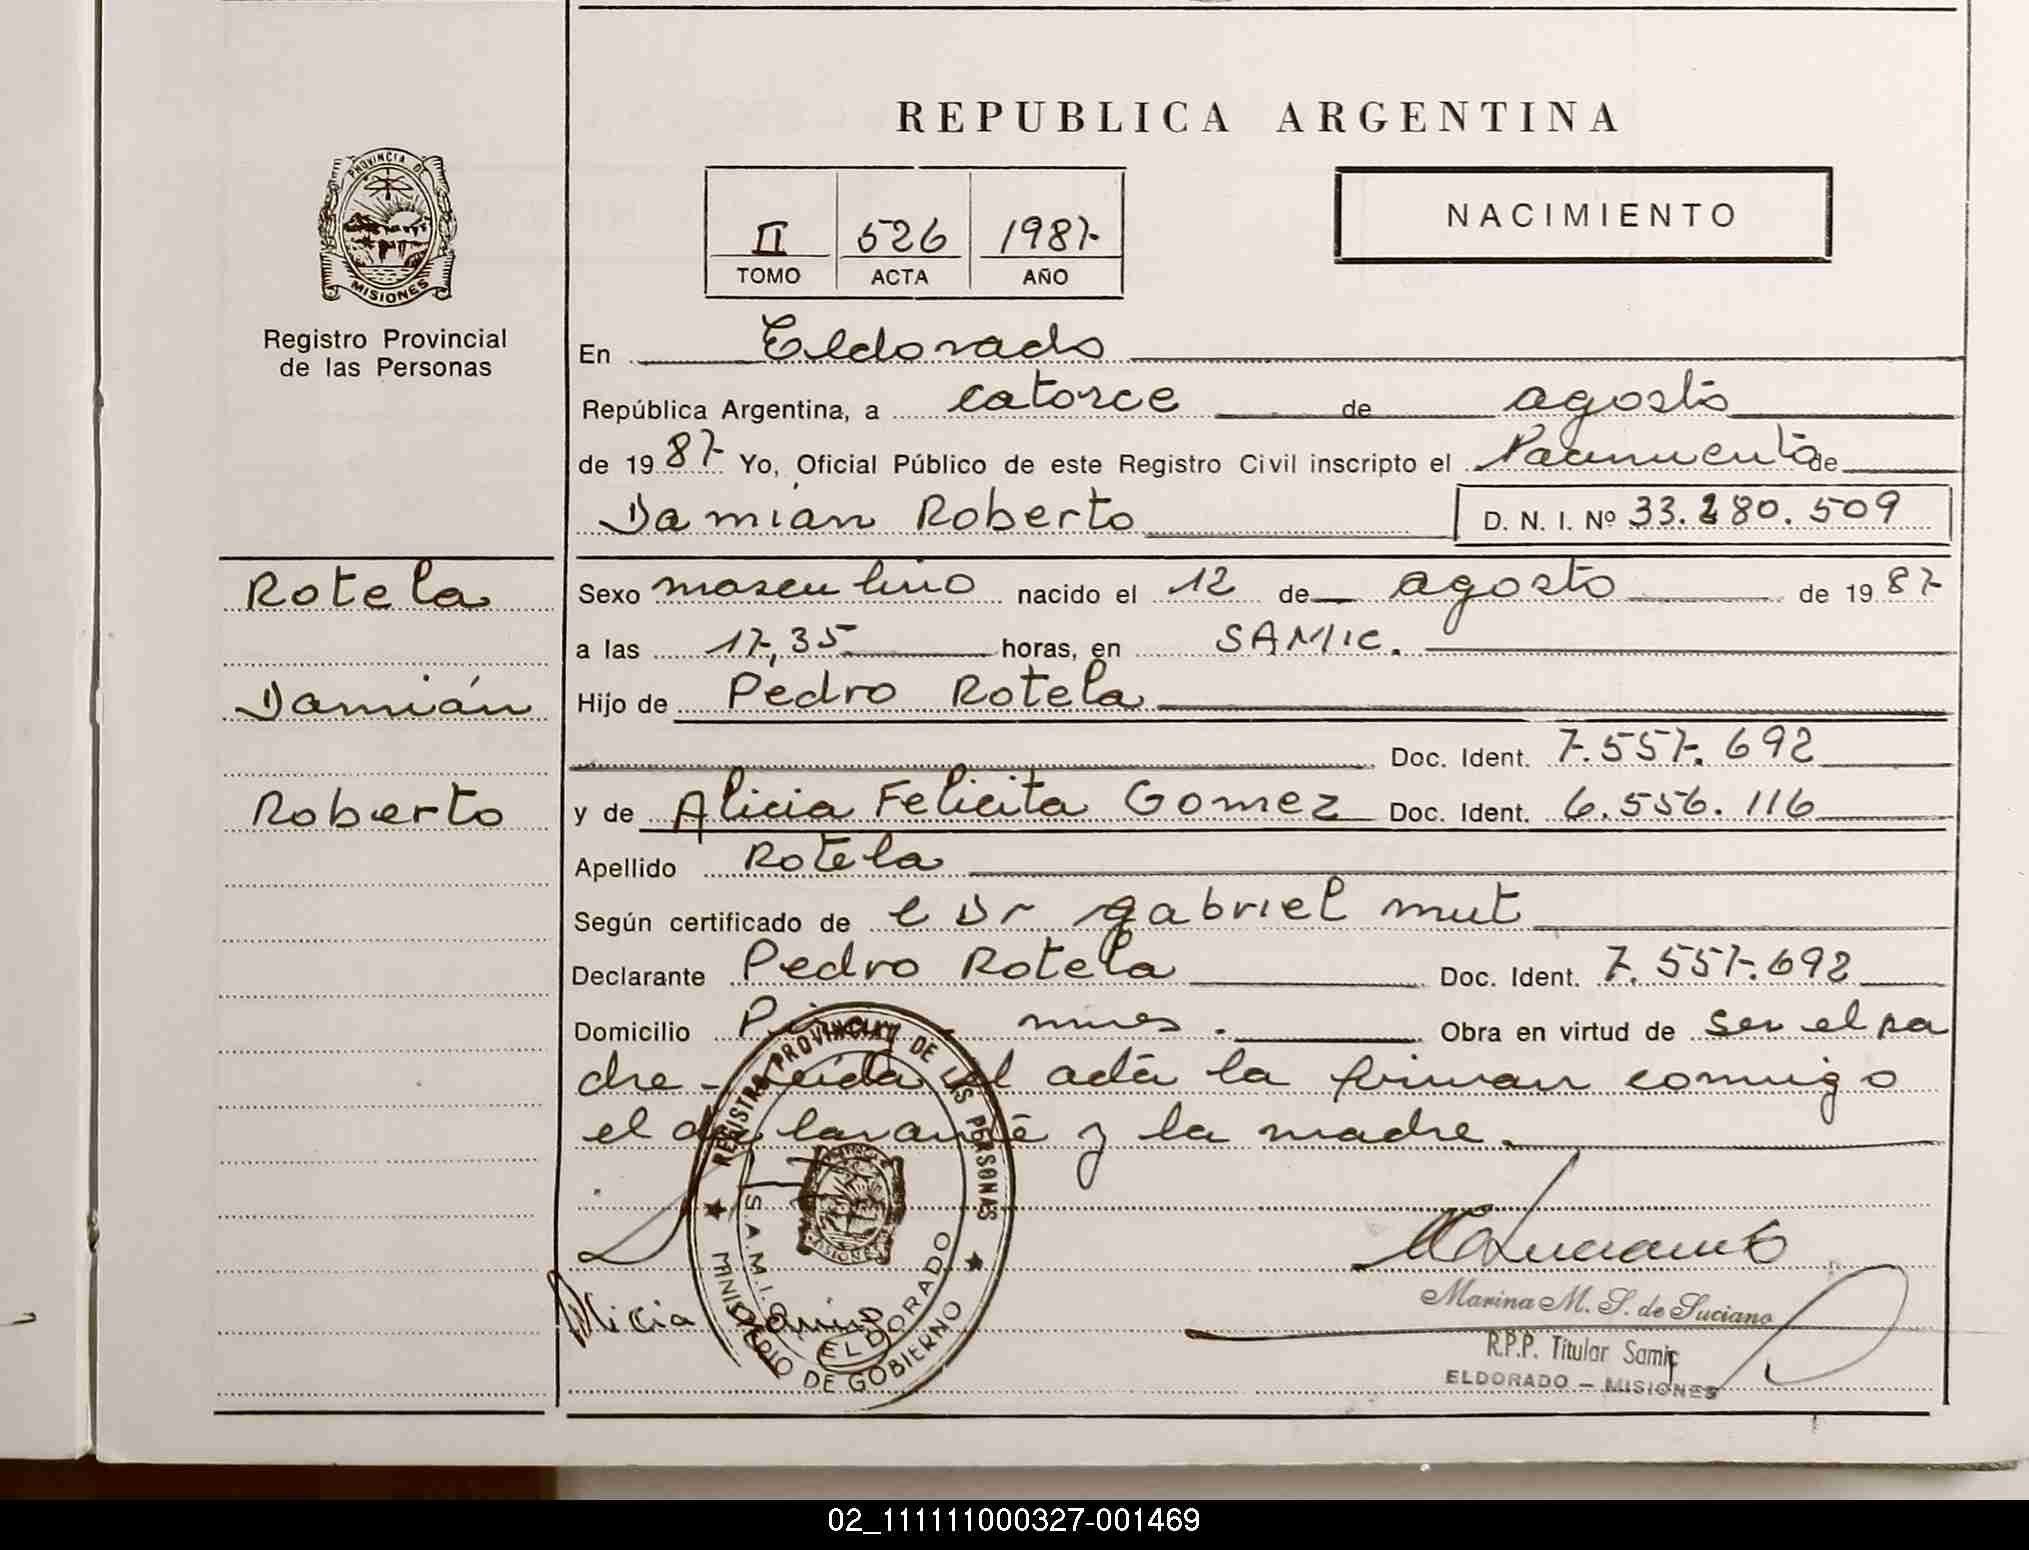 REPUBLICA ARGENTINA
PROVINCIA DE
MISIONES
Registro Provincial
de las Personas
II 526 1987
TOMO ACTA AÑO
NACIMIENTO
En Eldorado
República Argentina, a catorce de agosto
de 1987 Yo, Oficial Público de este Registro Civil inscripto el Nacimiento de
Damián Roberto D. N. I. Nº 33.280.509
Rotela
Damián
Roberto
Sexo masculino nacido el 12 de agosto de 1987
a las 17,35 horas, en SAMIC.
Hijo de Pedro Rotela
Doc. Ident. 7.557.692
y de Alicia Felicita Gomez Doc. Ident. 6.556.116
Apellido Rotela
Según certificado de e Dr gabriel mut
Declarante Pedro Rotela Doc. Ident. 7.557.692
Domicilio mnes. Obra en virtud de ser el pa
dre - Leida el acta la firman conmigo
el declarante y la madre.
REGISTRO PROVINCIAL DE LAS PERSONAS
S.A.M.I.C. ELDORADO
MINISTERIO DE GOBIERNO
MISIONES
Alicia
Marina M. S. de Luciano
R.P.P. Titular Samic
ELDORADO - MISIONES
02_111111000327-001469